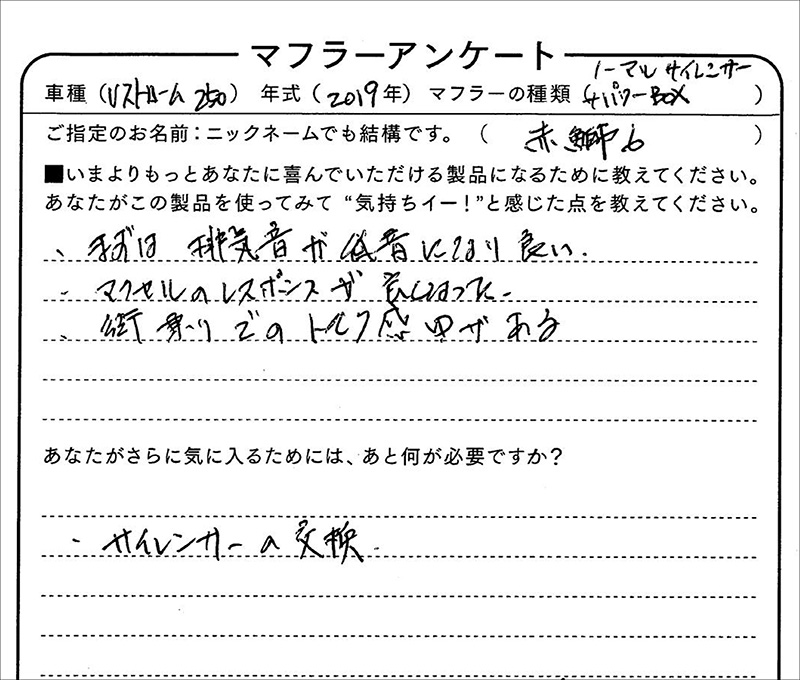 マフラーアンケート
ノーマルサイレンサー
車種（Vストローム 250） 年式（2019年）マフラーの種類（ サパワーBOX ）
ご指定のお名前：ニックネームでも結構です。（ 赤 ）
■いまよりもっとあなたに喜んでいただける製品になるために教えてください。
あなたがこの製品を使ってみて “気持ちイー！”と感じた点を教えてください。
、まずは 排気音が低音になり良い．
- アクセルのレスポンスが良くなった．
、街乗りでのトルク感 がある
あなたがさらに気に入るためには、あと何が必要ですか？
- サイレンサーの交換．